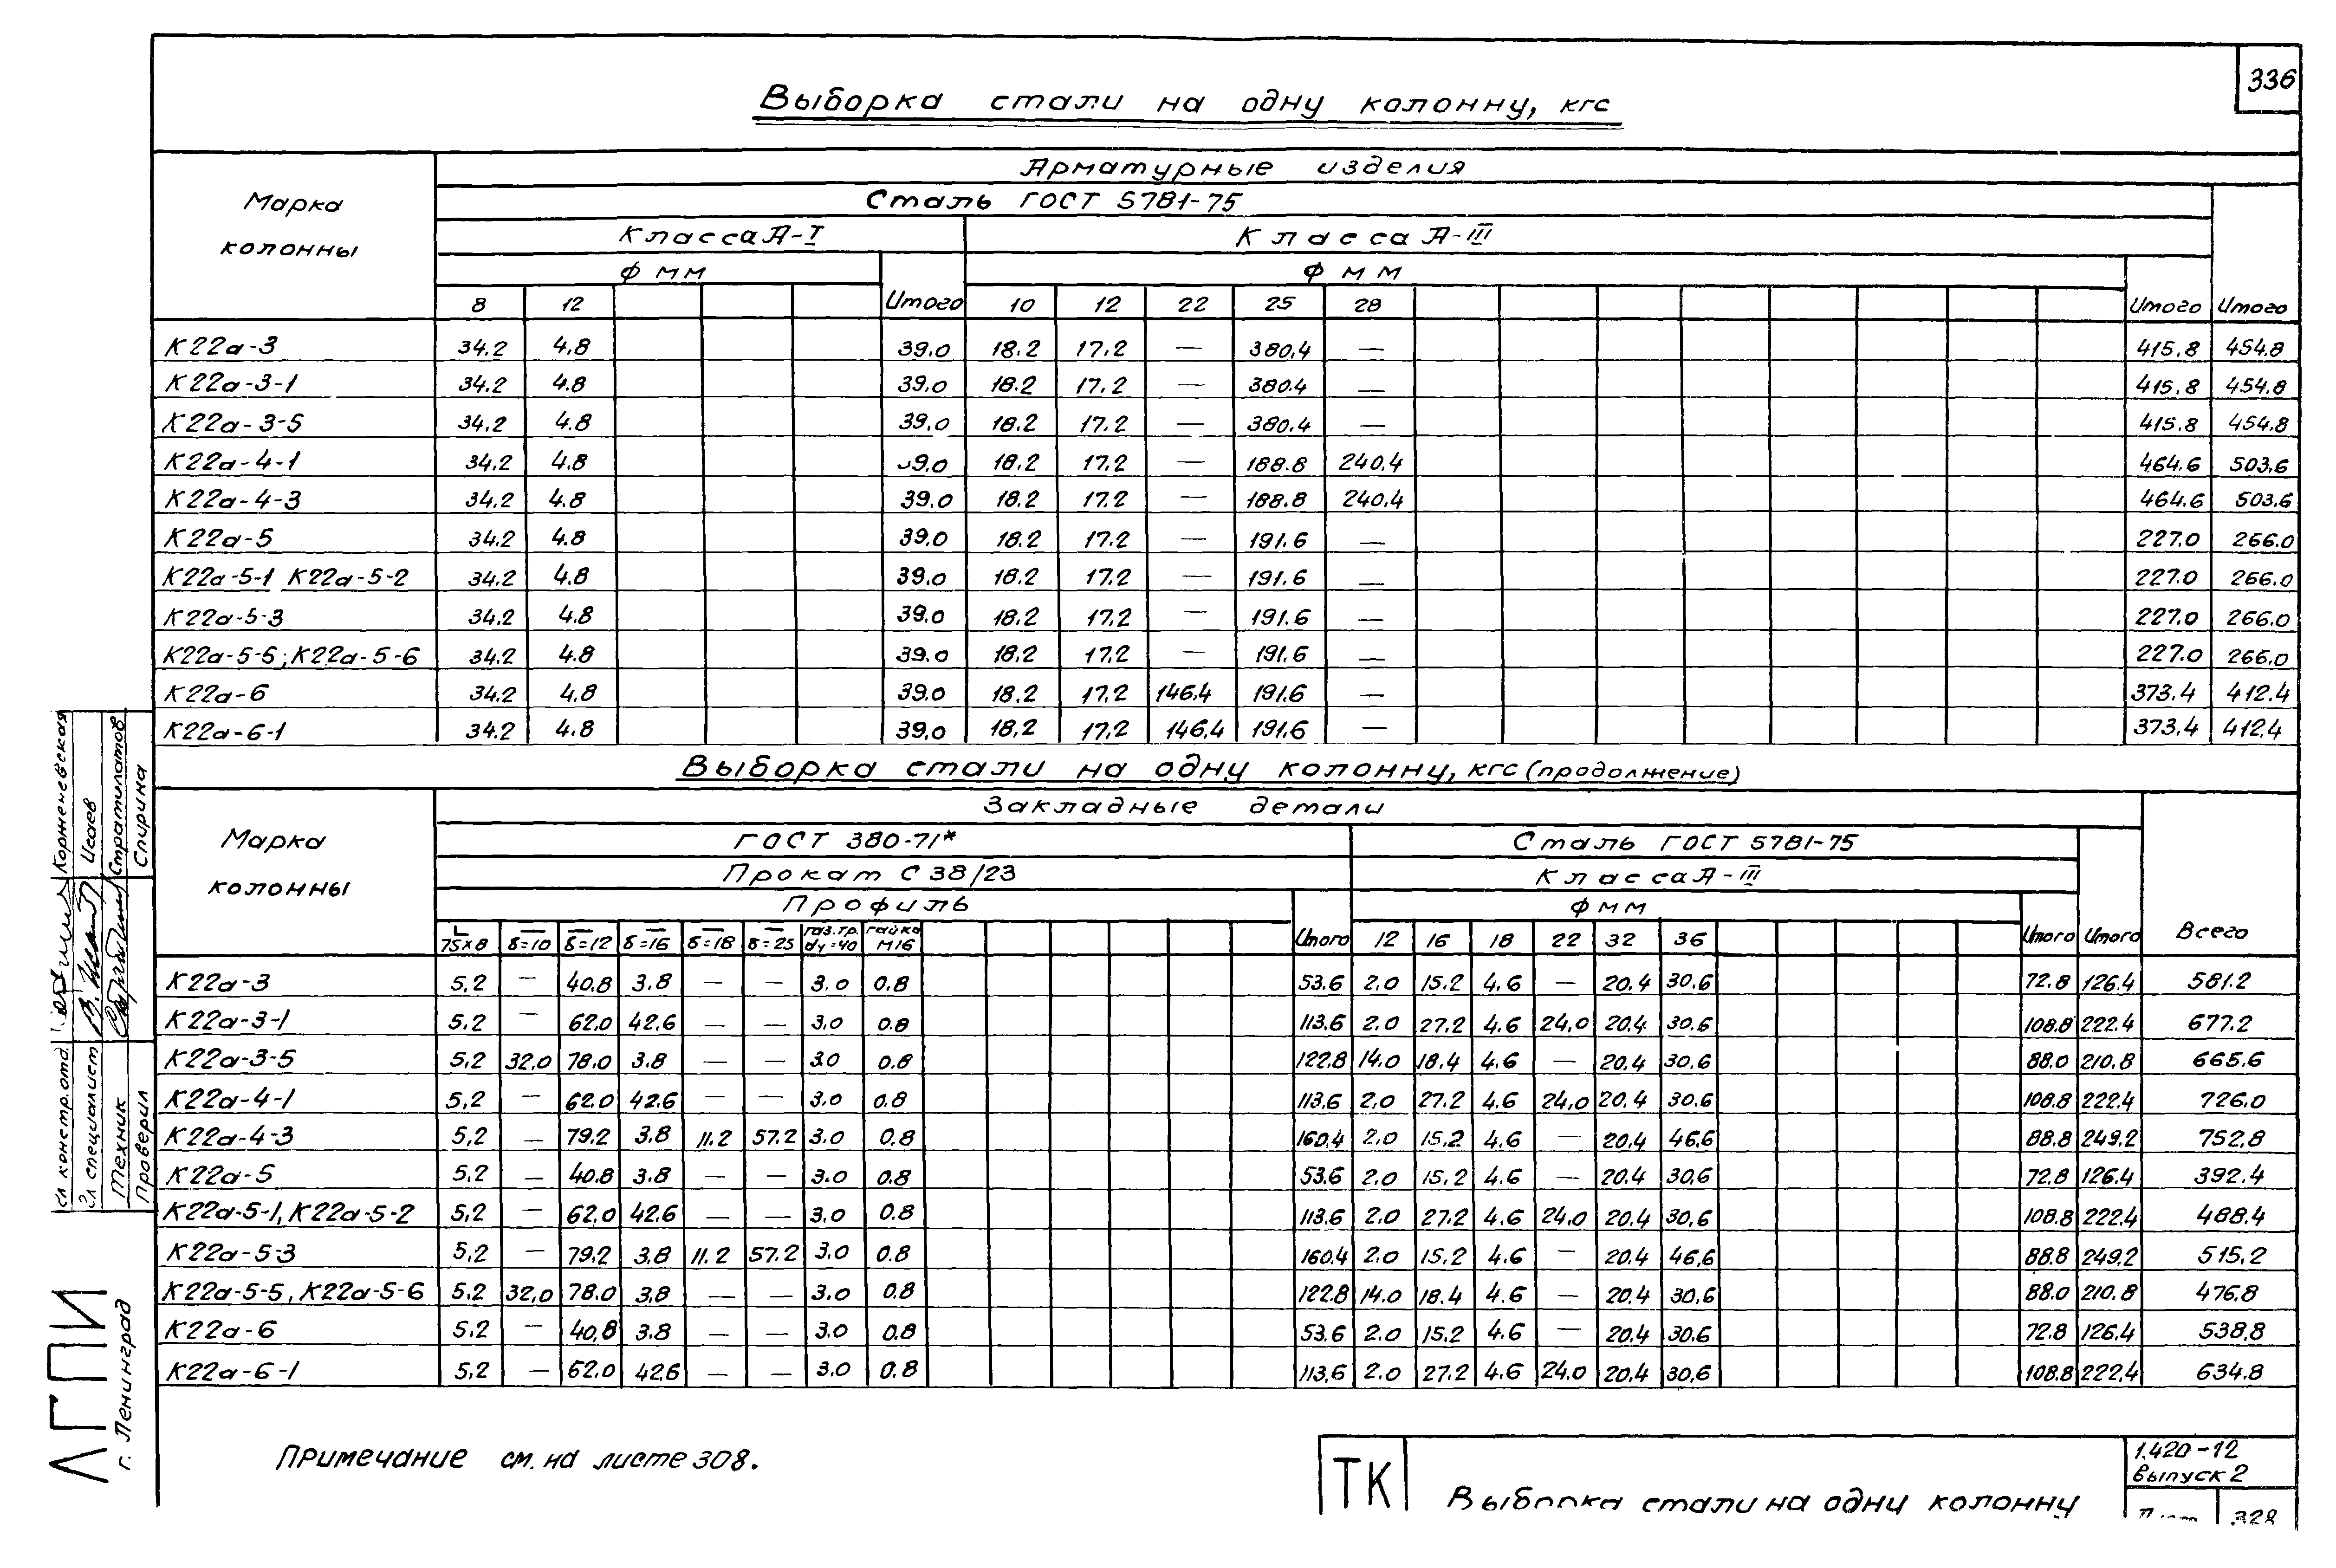 336
Выборка стали на одну колонну, кгс
Марка колонны
Арматурные изделия
Сталь ГОСТ 5781-75
Класса А-I
Класса А-III
Ф мм
Ф мм
8 12 Итого 10 12 22 25 28 Итого Итого
К22а-3 34.2 4.8 39.0 18.2 17.2 — 380.4 — 415.8 454.8
К22а-3-1 34.2 4.8 39.0 18.2 17.2 — 380.4 — 415.8 454.8
К22а-3-5 34.2 4.8 39.0 18.2 17.2 — 380.4 — 415.8 454.8
К22а-4-1 34.2 4.8 39.0 18.2 17.2 — 188.8 240.4 464.6 503.6
К22а-4-3 34.2 4.8 39.0 18.2 17.2 — 188.8 240.4 464.6 503.6
К22а-5 34.2 4.8 39.0 18.2 17.2 — 191.6 — 227.0 266.0
К22а-5-1 К22а-5-2 34.2 4.8 39.0 18.2 17.2 — 191.6 — 227.0 266.0
К22а-5-3 34.2 4.8 39.0 18.2 17.2 — 191.6 — 227.0 266.0
К22а-5-5; К22а-5-6 34.2 4.8 39.0 18.2 17.2 — 191.6 — 227.0 266.0
К22а-6 34.2 4.8 39.0 18.2 17.2 146.4 191.6 — 373.4 412.4
К22а-6-1 34.2 4.8 39.0 18.2 17.2 146.4 191.6 — 373.4 412.4
Выборка стали на одну колонну, кгс (продолжение)
Марка колонны
Закладные детали
ГОСТ 380-71*
Сталь ГОСТ 5781-75
Прокат С 38/23
Класса А-III
Профиль
Ф мм
75×8 δ=10 δ=12 δ=16 δ=18 δ=25 газ.тр. dу=40 гайка М16 Итого 12 16 18 22 32 36 Итого Итого Всего
К22а-3 5.2 — 40.8 3.8 — — 3.0 0.8 53.6 2.0 15.2 4.6 — 20.4 30.6 72.8 126.4 581.2
К22а-3-1 5.2 — 62.0 42.6 — — 3.0 0.8 113.6 2.0 27.2 4.6 24.0 20.4 30.6 108.8 222.4 677.2
К22а-3-5 5.2 32.0 78.0 3.8 — — 3.0 0.8 122.8 14.0 18.4 4.6 — 20.4 30.6 88.0 210.8 665.6
К22а-4-1 5.2 — 62.0 42.6 — — 3.0 0.8 113.6 2.0 27.2 4.6 24.0 20.4 30.6 108.8 222.4 726.0
К22а-4-3 5.2 — 79.2 3.8 11.2 57.2 3.0 0.8 160.4 2.0 15.2 4.6 — 20.4 46.6 88.8 249.2 752.8
К22а-5 5.2 — 40.8 3.8 — — 3.0 0.8 53.6 2.0 15.2 4.6 — 20.4 30.6 72.8 126.4 392.4
К22а-5-1, К22а-5-2 5.2 — 62.0 42.6 — — 3.0 0.8 113.6 2.0 27.2 4.6 24.0 20.4 30.6 108.8 222.4 488.4
К22а-5-3 5.2 — 79.2 3.8 11.2 57.2 3.0 0.8 160.4 2.0 15.2 4.6 — 20.4 46.6 88.8 249.2 515.2
К22а-5-5, К22а-5-6 5.2 32.0 78.0 3.8 — — 3.0 0.8 122.8 14.0 18.4 4.6 — 20.4 30.6 88.0 210.8 476.8
К22а-6 5.2 — 40.8 3.8 — — 3.0 0.8 53.6 2.0 15.2 4.6 — 20.4 30.6 72.8 126.4 538.8
К22а-6-1 5.2 — 62.0 42.6 — — 3.0 0.8 113.6 2.0 27.2 4.6 24.0 20.4 30.6 108.8 222.4 634.8
Примечание см. на листе 308.
ТК
Выборка стали на одну колонну
1.420-12
выпуск 2
Лист 328
Гл констр. отд. Корженевская
Гл специалист Исаев
Техник Стратилатов
Проверил Спирина
ЛГПИ
г. Ленинград